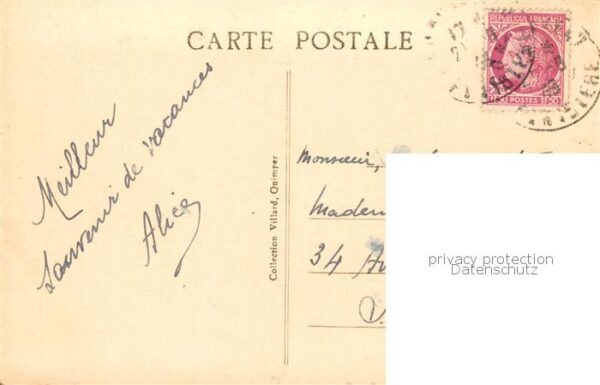 CARTE POSTALE
REPUBLIQUE FRANÇAISE
POSTES 1F50
Meilleur
Souvenir de vacances
Alice
Collection Villard, Quimper
Monsieur,
Madem
34 Av
privacy protection
Datenschutz